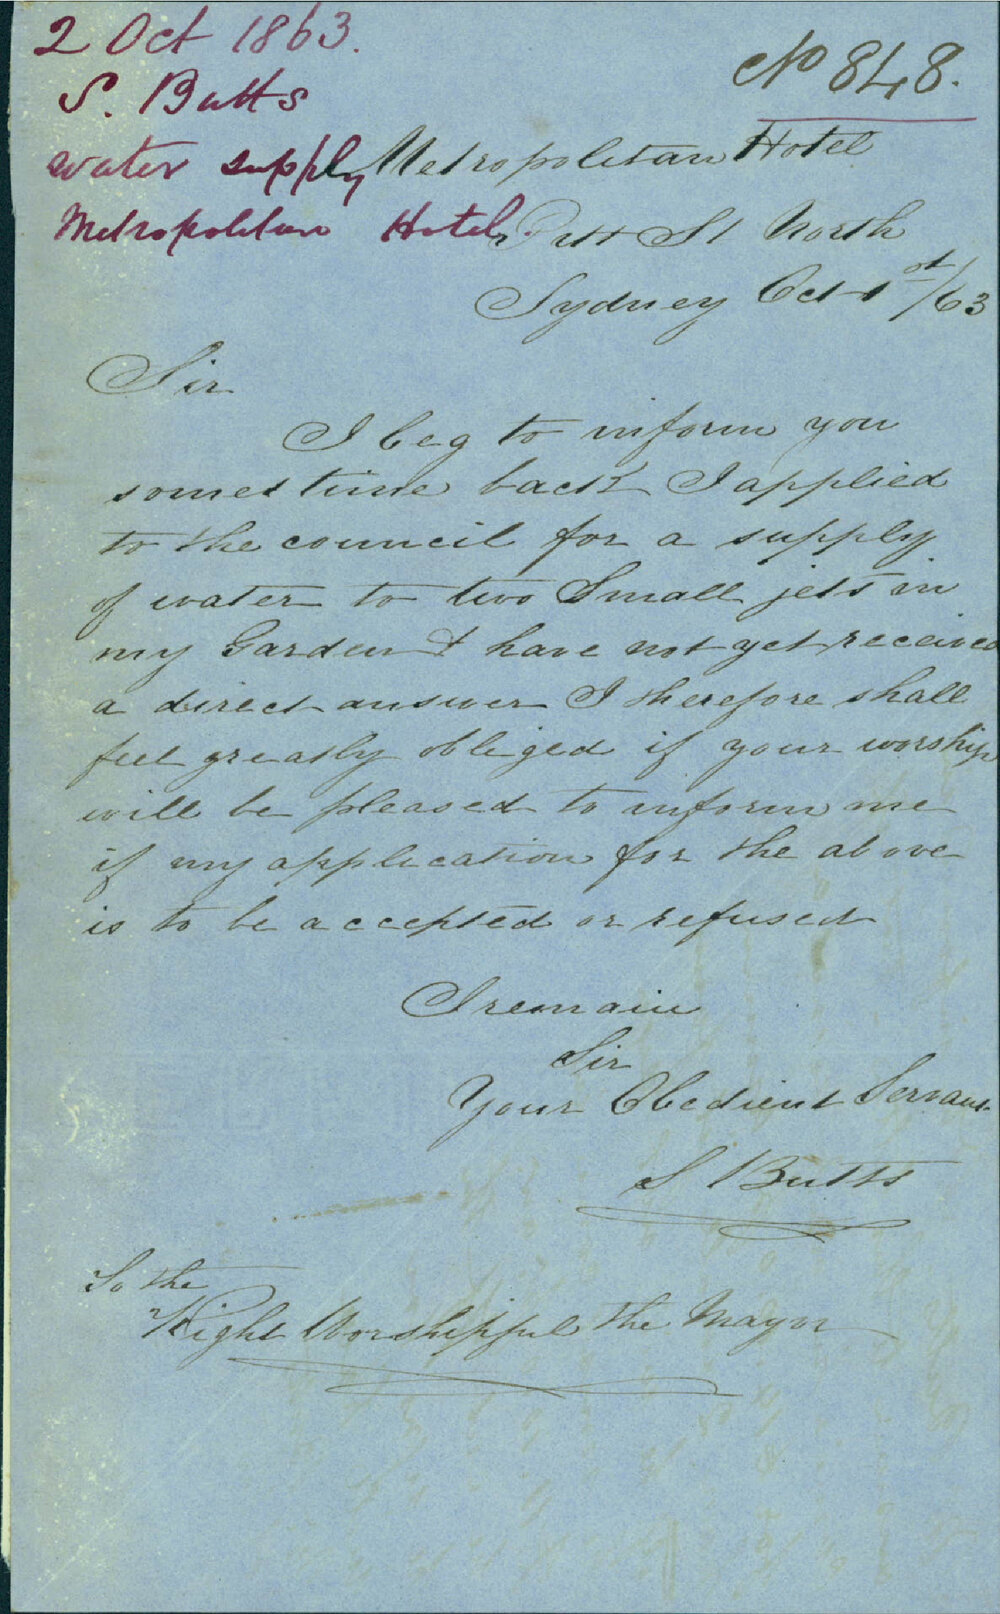 2 Oct 1863.
S. Butts
water supply
Metropolitan Hotel.
No 848.
Metropolitan Hotel
Pitt St North
Sydney Oct 1st/63
Sir
I beg to inform you
somes time back I applied
to the council for a supply
of water to two Small jets in
my Garden & have not yet received
a direct answer I therefore shall
feel greatly obliged if your worship
will be pleased to inform me
if my application for the above
is to be accepted or refused
I remain
Sir
Your Obedient Servant
S Butts
To the
Right Worshipful the Mayor